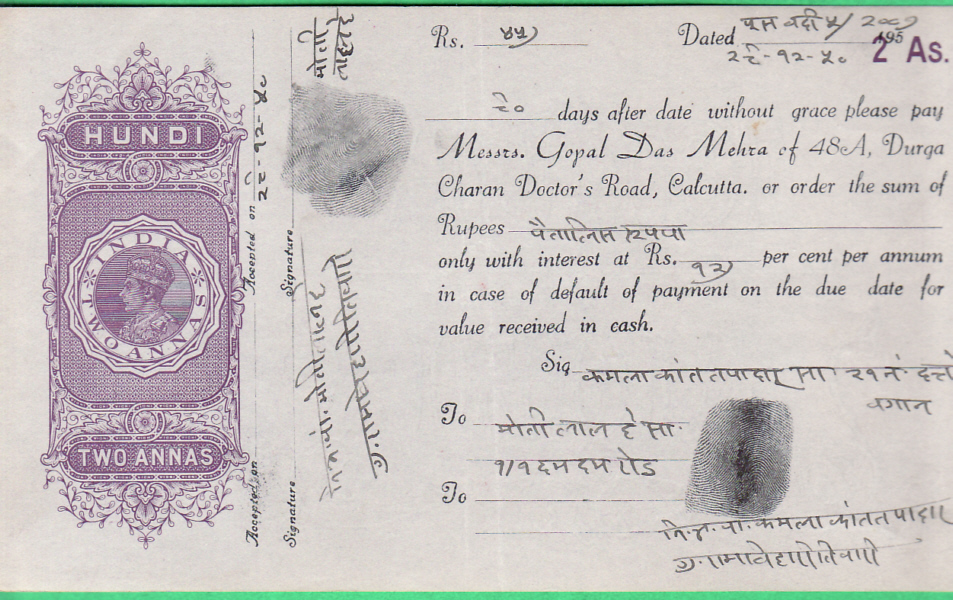 HUNDI
INDIA
TWO ANNAS
TWO ANNAS
Accepted on २९-१२-५०
Signature
Accepted on
Signature
Rs. ४५)
Dated पुस वदी ५/ २००७
195
२९-१२-५०
2 As.
९० days after date without grace please pay
Messrs. Gopal Das Mehra of 48A, Durga
Charan Doctor's Road, Calcutta. or order the sum of
Rupees पैतालिस रुपया
only with interest at Rs. १२) per cent per annum
in case of default of payment on the due date for
value received in cash.
Sig कमला कांत तपादार सा २१ नं
वगान
To मोती लाल दे सा.
१/१ दम दम रोड
To
कमला कांत तपादार